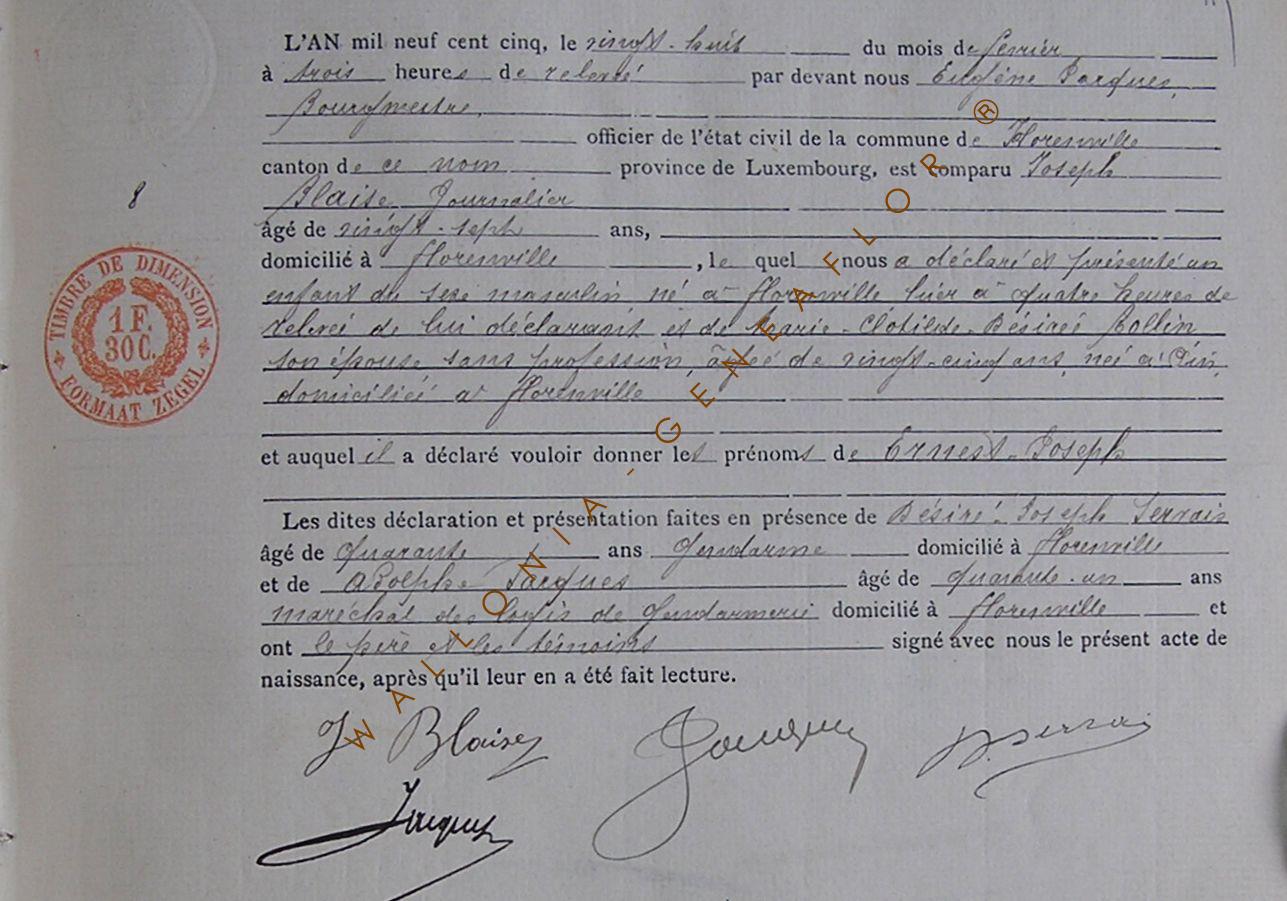 L'AN mil neuf cent cinq, le vingt-huit du mois de février
à trois heures de relevée par devant nous Eugène Jacques,
Bourgmestre,
officier de l'état civil de la commune de Florenville
canton de ce nom province de Luxembourg, est comparu Joseph
Blaise Journalier
âgé de vingt-sept ans,
domicilié à Florenville, le quel nous a déclaré et présenté un
enfant du sexe masculin né à Florenville hier à quatre heures de
relevée de lui déclarant et de Marie-Clotilde-Désirée Rollin
son épouse sans profession, âgée de vingt-cinq ans, née à
domiciliée à Florenville
et auquel il a déclaré vouloir donner les prénoms de Ernest-Joseph
Les dites déclaration et présentation faites en présence de Désiré-Joseph Servais
âgé de quarante ans Gendarme domicilié à Florenville
et de Adolphe Jacques âgé de quarante-un ans
maréchal des logis de Gendarmerie domicilié à Florenville et
ont le père et les témoins signé avec nous le présent acte de
naissance, après qu'il leur en a été fait lecture.
8
TIMBRE DE DIMENSION
1 F.
30 C.
FORMAAT ZEGEL
J Blaise Jacques Servais
Jacques
WALLONIA-GENEAFLOR ®